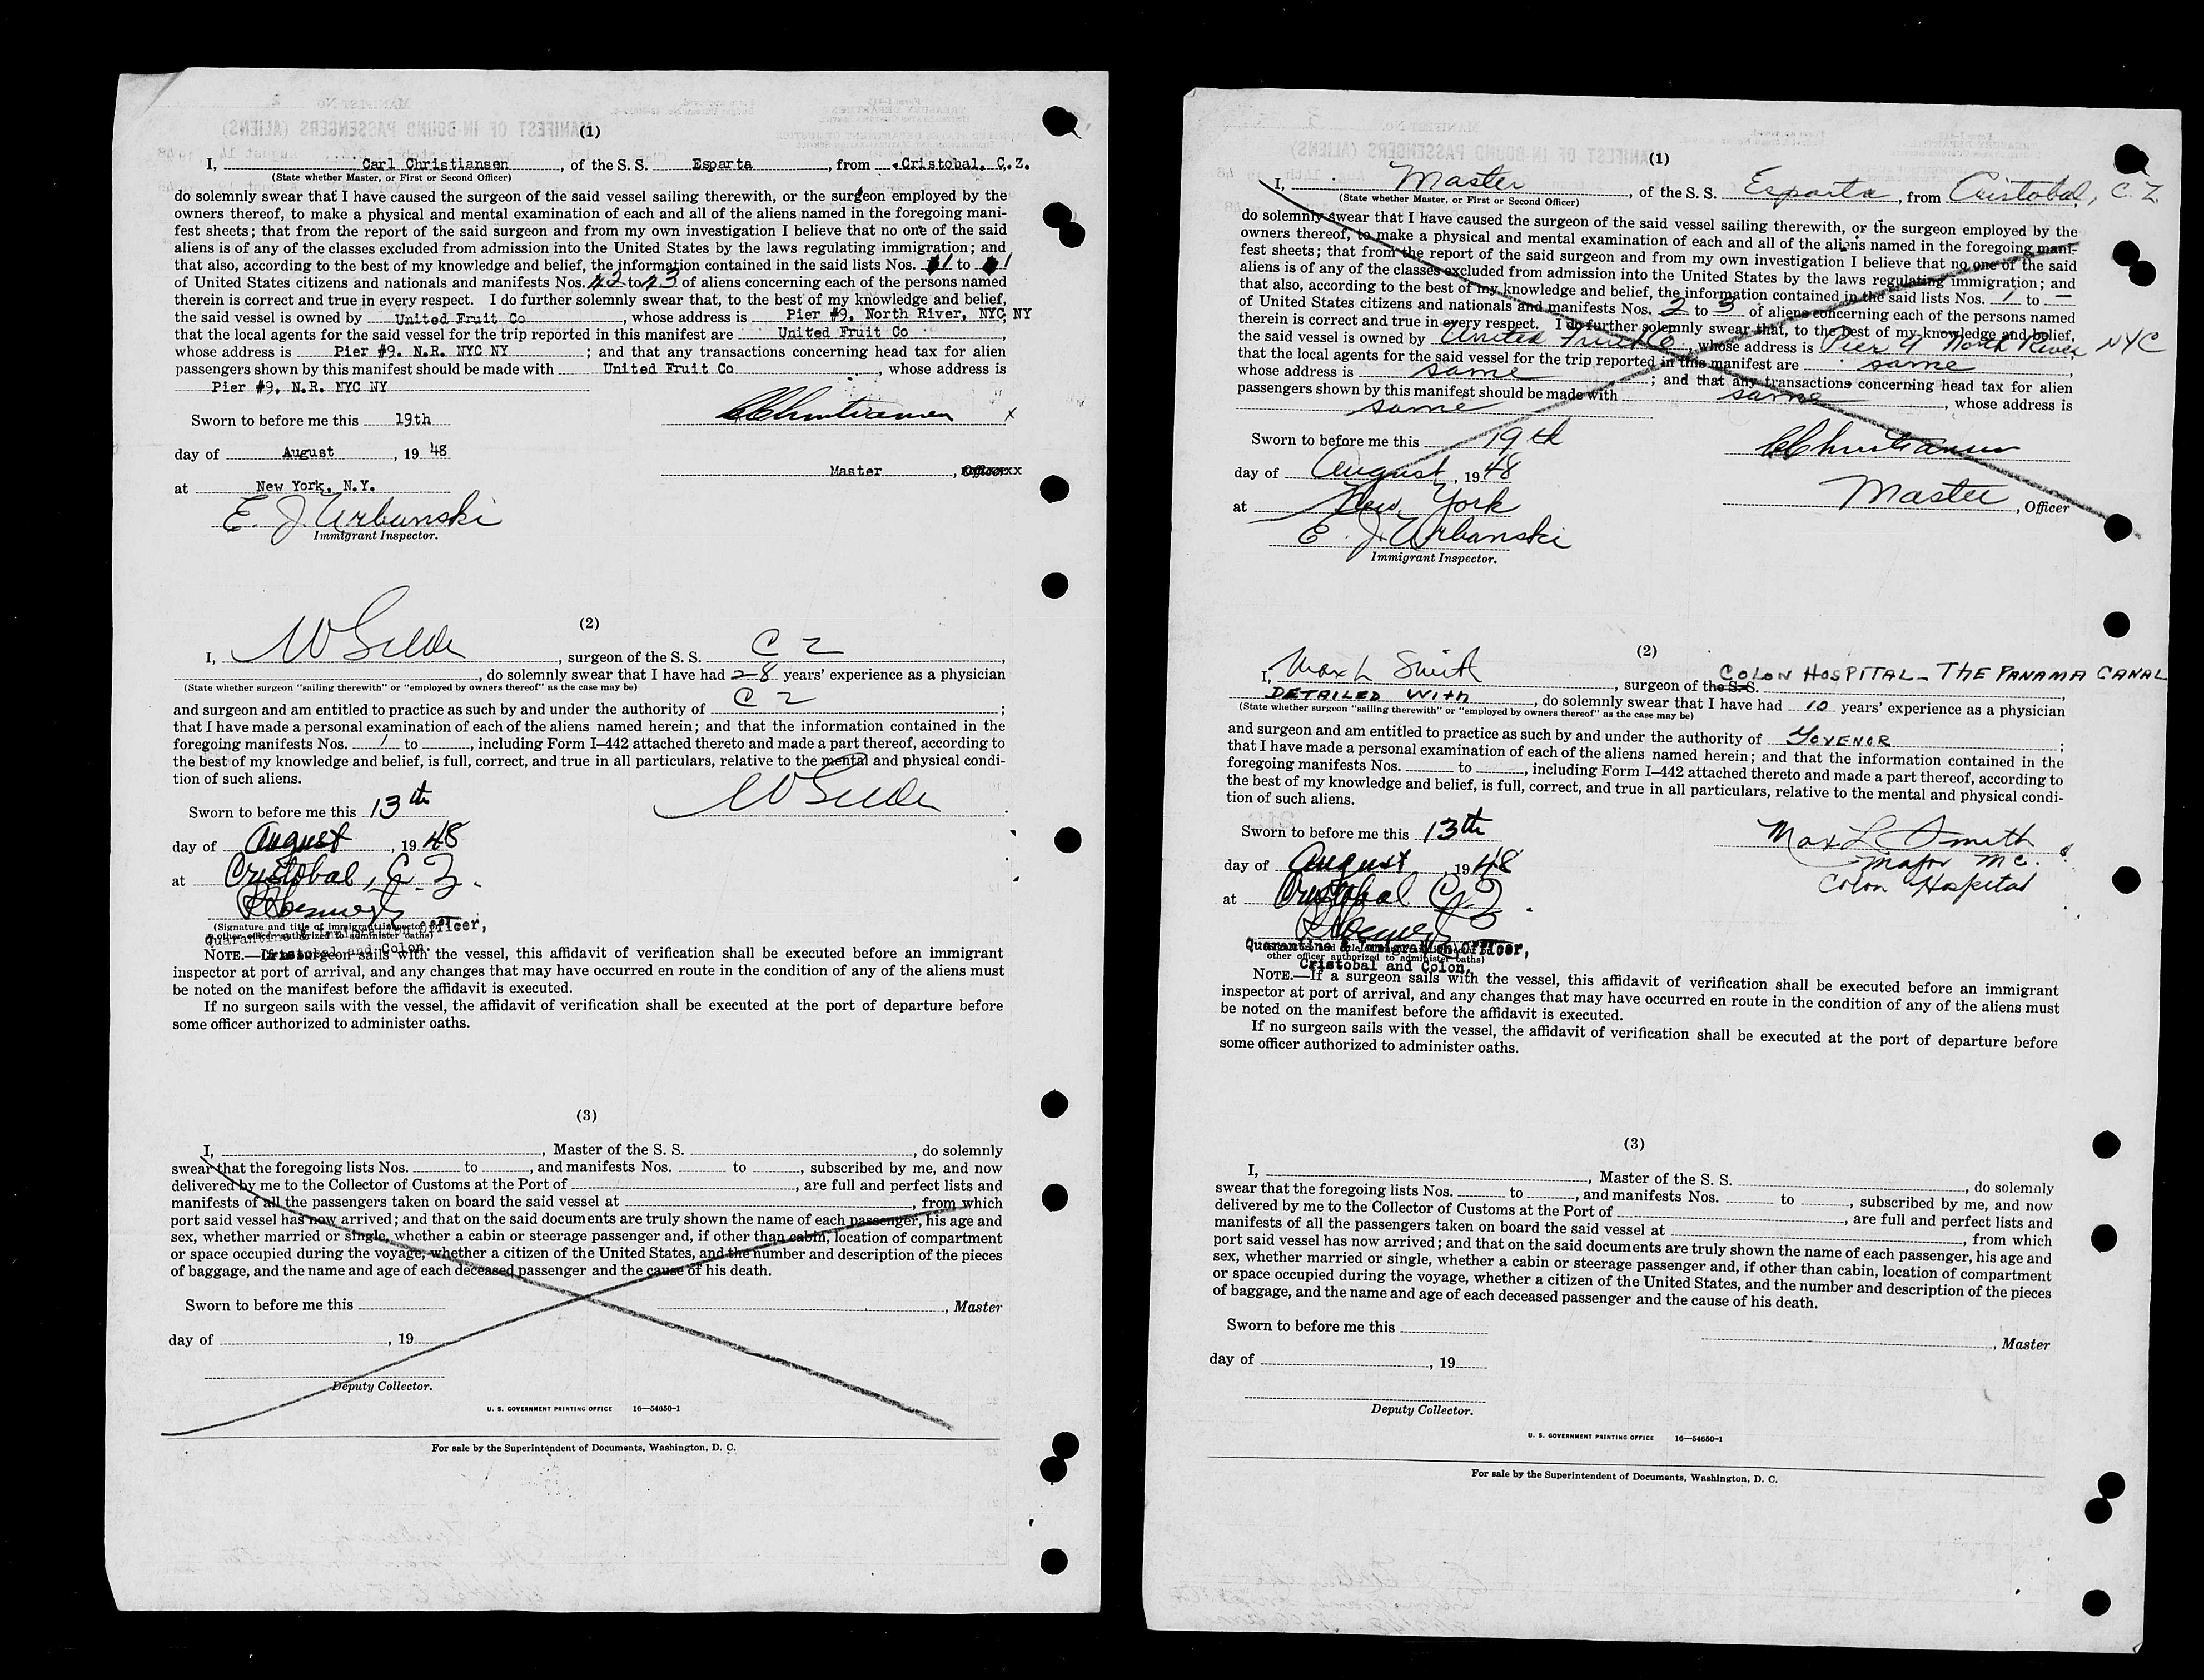 (1)
I, Carl Christiansen, of the S. S. Esparta, from Cristobal, C.Z.
(State whether Master, or First or Second Officer)
do solemnly swear that I have caused the surgeon of the said vessel sailing therewith, or the surgeon employed by the
owners thereof, to make a physical and mental examination of each and all of the aliens named in the foregoing mani-
fest sheets; that from the report of the said surgeon and from my own investigation I believe that no one of the said
aliens is of any of the classes excluded from admission into the United States by the laws regulating immigration; and
that also, according to the best of my knowledge and belief, the information contained in the said lists Nos. 1 to 1
of United States citizens and nationals and manifests Nos. 2 to 3 of aliens concerning each of the persons named
therein is correct and true in every respect. I do further solemnly swear that, to the best of my knowledge and belief,
the said vessel is owned by United Fruit Co, whose address is Pier #9, North River, NYC, NY
that the local agents for the said vessel for the trip reported in this manifest are United Fruit Co,
whose address is Pier #9, N.R. NYC NY; and that any transactions concerning head tax for alien
passengers shown by this manifest should be made with United Fruit Co, whose address is
Pier #9, N.R. NYC NY
Sworn to before me this 19th
CChristiansen x
day of August, 19 48
Master, Officer xx
at New York, N.Y.
E. J. Urbanski
Immigrant Inspector.
(2)
I, , surgeon of the S. S. C Z,
, do solemnly swear that I have had 28 years' experience as a physician
(State whether surgeon "sailing therewith" or "employed by owners thereof" as the case may be)
and surgeon and am entitled to practice as such by and under the authority of C Z;
that I have made a personal examination of each of the aliens named herein; and that the information contained in the
foregoing manifests Nos. 1 to , including Form I–442 attached thereto and made a part thereof, according to
the best of my knowledge and belief, is full, correct, and true in all particulars, relative to the mental and physical condi-
tion of such aliens.
Sworn to before me this 13th
day of August, 19 48
at Cristobal, C.Z.
(Signature and title of immigrant inspector or
other officer authorized to administer oaths)
Quarantine & Immigration Officer,
Cristobal and Colon.
NOTE.—If a surgeon sails with the vessel, this affidavit of verification shall be executed before an immigrant
inspector at port of arrival, and any changes that may have occurred en route in the condition of any of the aliens must
be noted on the manifest before the affidavit is executed.
If no surgeon sails with the vessel, the affidavit of verification shall be executed at the port of departure before
some officer authorized to administer oaths.
(3)
I, , Master of the S. S. , do solemnly
swear that the foregoing lists Nos. to , and manifests Nos. to , subscribed by me, and now
delivered by me to the Collector of Customs at the Port of , are full and perfect lists and
manifests of all the passengers taken on board the said vessel at , from which
port said vessel has now arrived; and that on the said documents are truly shown the name of each passenger, his age and
sex, whether married or single, whether a cabin or steerage passenger and, if other than cabin, location of compartment
or space occupied during the voyage, whether a citizen of the United States, and the number and description of the pieces
of baggage, and the name and age of each deceased passenger and the cause of his death.
Sworn to before me this
, Master
day of , 19
Deputy Collector.
U. S. GOVERNMENT PRINTING OFFICE 16—54650-1
For sale by the Superintendent of Documents, Washington, D. C.
(1)
I, Master, of the S. S. Esparta, from Cristobal, C. Z.
(State whether Master, or First or Second Officer)
do solemnly swear that I have caused the surgeon of the said vessel sailing therewith, or the surgeon employed by the
owners thereof, to make a physical and mental examination of each and all of the aliens named in the foregoing mani-
fest sheets; that from the report of the said surgeon and from my own investigation I believe that no one of the said
aliens is of any of the classes excluded from admission into the United States by the laws regulating immigration; and
that also, according to the best of my knowledge and belief, the information contained in the said lists Nos. 1 to —
of United States citizens and nationals and manifests Nos. 2 to 3 of aliens concerning each of the persons named
therein is correct and true in every respect. I do further solemnly swear that, to the best of my knowledge and belief,
the said vessel is owned by United Fruit Co, whose address is Pier 9 North River NYC
that the local agents for the said vessel for the trip reported in this manifest are same,
whose address is same; and that any transactions concerning head tax for alien
passengers shown by this manifest should be made with same, whose address is
same
Sworn to before me this 19th
CChristiansen
day of August, 19 48
Master, Officer
at New York
E. J. Urbanski
Immigrant Inspector.
(2)
I, Max L Smith, surgeon of the S. S. COLON HOSPITAL - THE PANAMA CANAL
DETAILED WITH, do solemnly swear that I have had 10 years' experience as a physician
(State whether surgeon "sailing therewith" or "employed by owners thereof" as the case may be)
and surgeon and am entitled to practice as such by and under the authority of GOVENOR;
that I have made a personal examination of each of the aliens named herein; and that the information contained in the
foregoing manifests Nos. to , including Form I–442 attached thereto and made a part thereof, according to
the best of my knowledge and belief, is full, correct, and true in all particulars, relative to the mental and physical condi-
tion of such aliens.
Sworn to before me this 13th
Max L Smith
day of August 19 48
Major MC.
Colon Hospital
at Cristobal C.Z.
Quarantine & Immigration Officer,
other officer authorized to administer oaths)
Cristobal and Colon.
NOTE.—If a surgeon sails with the vessel, this affidavit of verification shall be executed before an immigrant
inspector at port of arrival, and any changes that may have occurred en route in the condition of any of the aliens must
be noted on the manifest before the affidavit is executed.
If no surgeon sails with the vessel, the affidavit of verification shall be executed at the port of departure before
some officer authorized to administer oaths.
(3)
I, , Master of the S. S. , do solemnly
swear that the foregoing lists Nos. to , and manifests Nos. to , subscribed by me, and now
delivered by me to the Collector of Customs at the Port of , are full and perfect lists and
manifests of all the passengers taken on board the said vessel at , from which
port said vessel has now arrived; and that on the said documents are truly shown the name of each passenger, his age and
sex, whether married or single, whether a cabin or steerage passenger and, if other than cabin, location of compartment
or space occupied during the voyage, whether a citizen of the United States, and the number and description of the pieces
of baggage, and the name and age of each deceased passenger and the cause of his death.
Sworn to before me this
, Master
day of , 19
Deputy Collector.
U. S. GOVERNMENT PRINTING OFFICE 16—54650-1
For sale by the Superintendent of Documents, Washington, D. C.